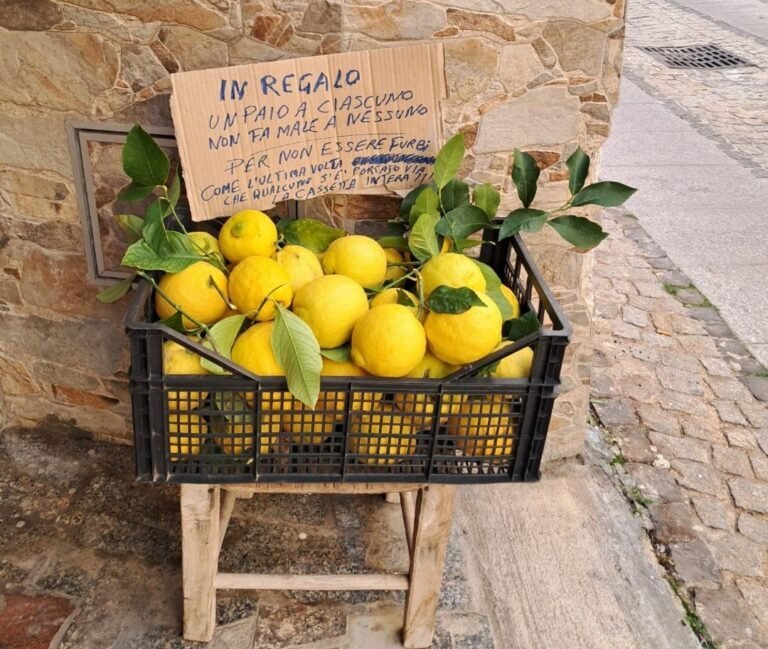 IN REGALO
UN PAIO A CIASCUNO
NON FA MALE A NESSUNO
PER NON ESSERE FURBI
COME L'ULTIMA VOLTA
CHE QUALCUNO S'E' PORTATO VIA
LA CASSETTA INTERA !!!